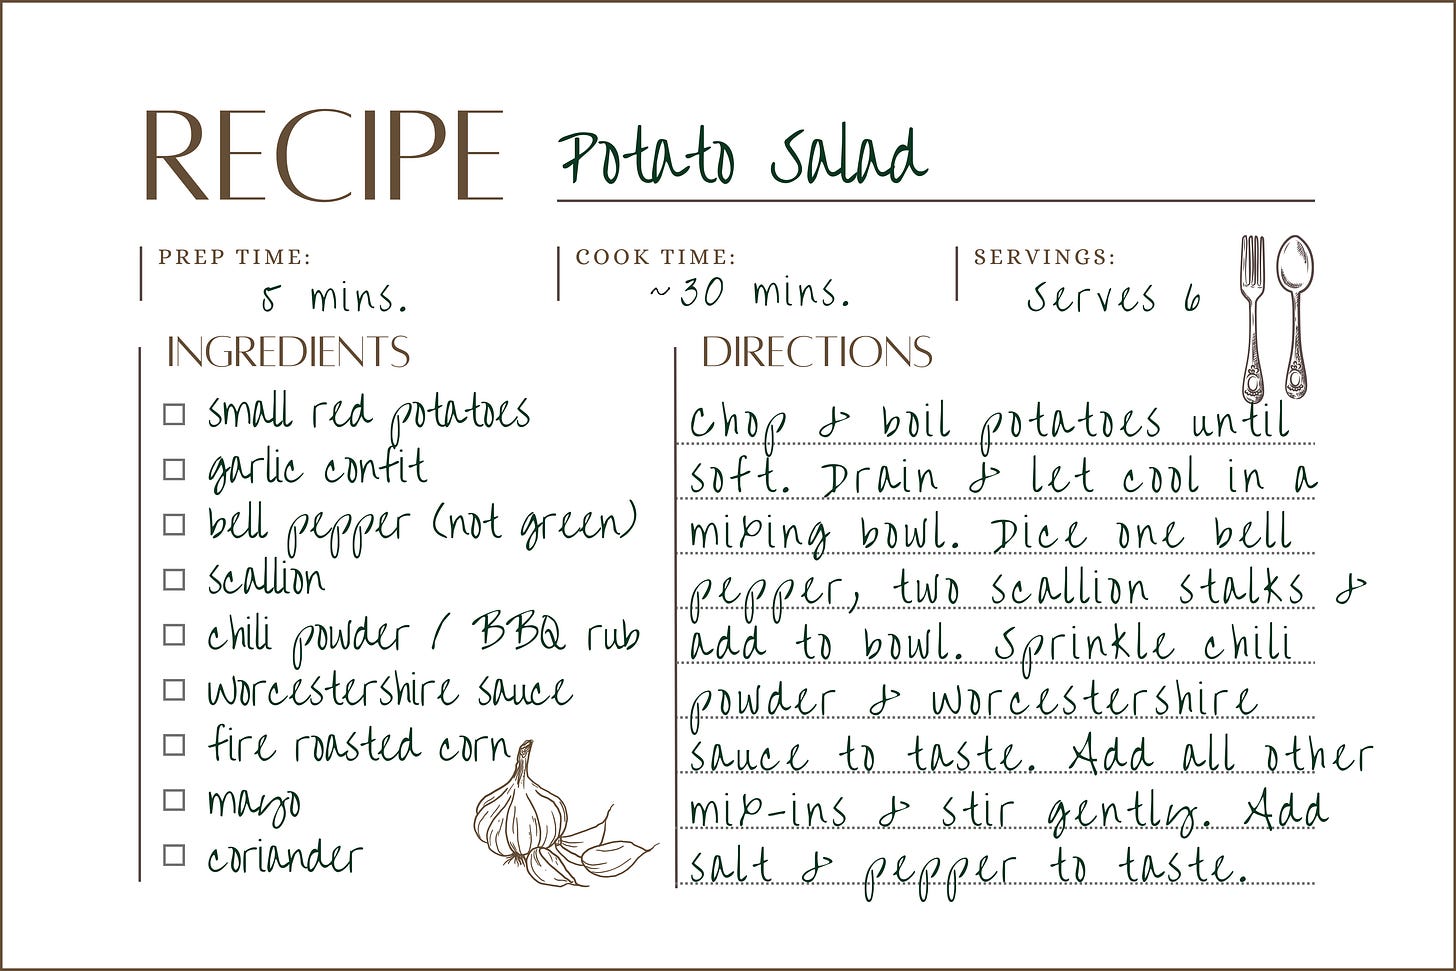 RECIPE Potato Salad
PREP TIME:
5 mins.
COOK TIME:
~30 mins.
SERVINGS:
Serves 6
INGREDIENTS
small red potatoes
garlic confit
bell pepper (not green)
scallion
chili powder / BBQ rub
worcestershire sauce
fire roasted corn
mayo
coriander
DIRECTIONS
Chop & boil potatoes until
soft. Drain & let cool in a
mixing bowl. Dice one bell
pepper, two scallion stalks &
add to bowl. Sprinkle chili
powder & worcestershire
sauce to taste. Add all other
mix-ins & stir gently. Add
salt & pepper to taste.